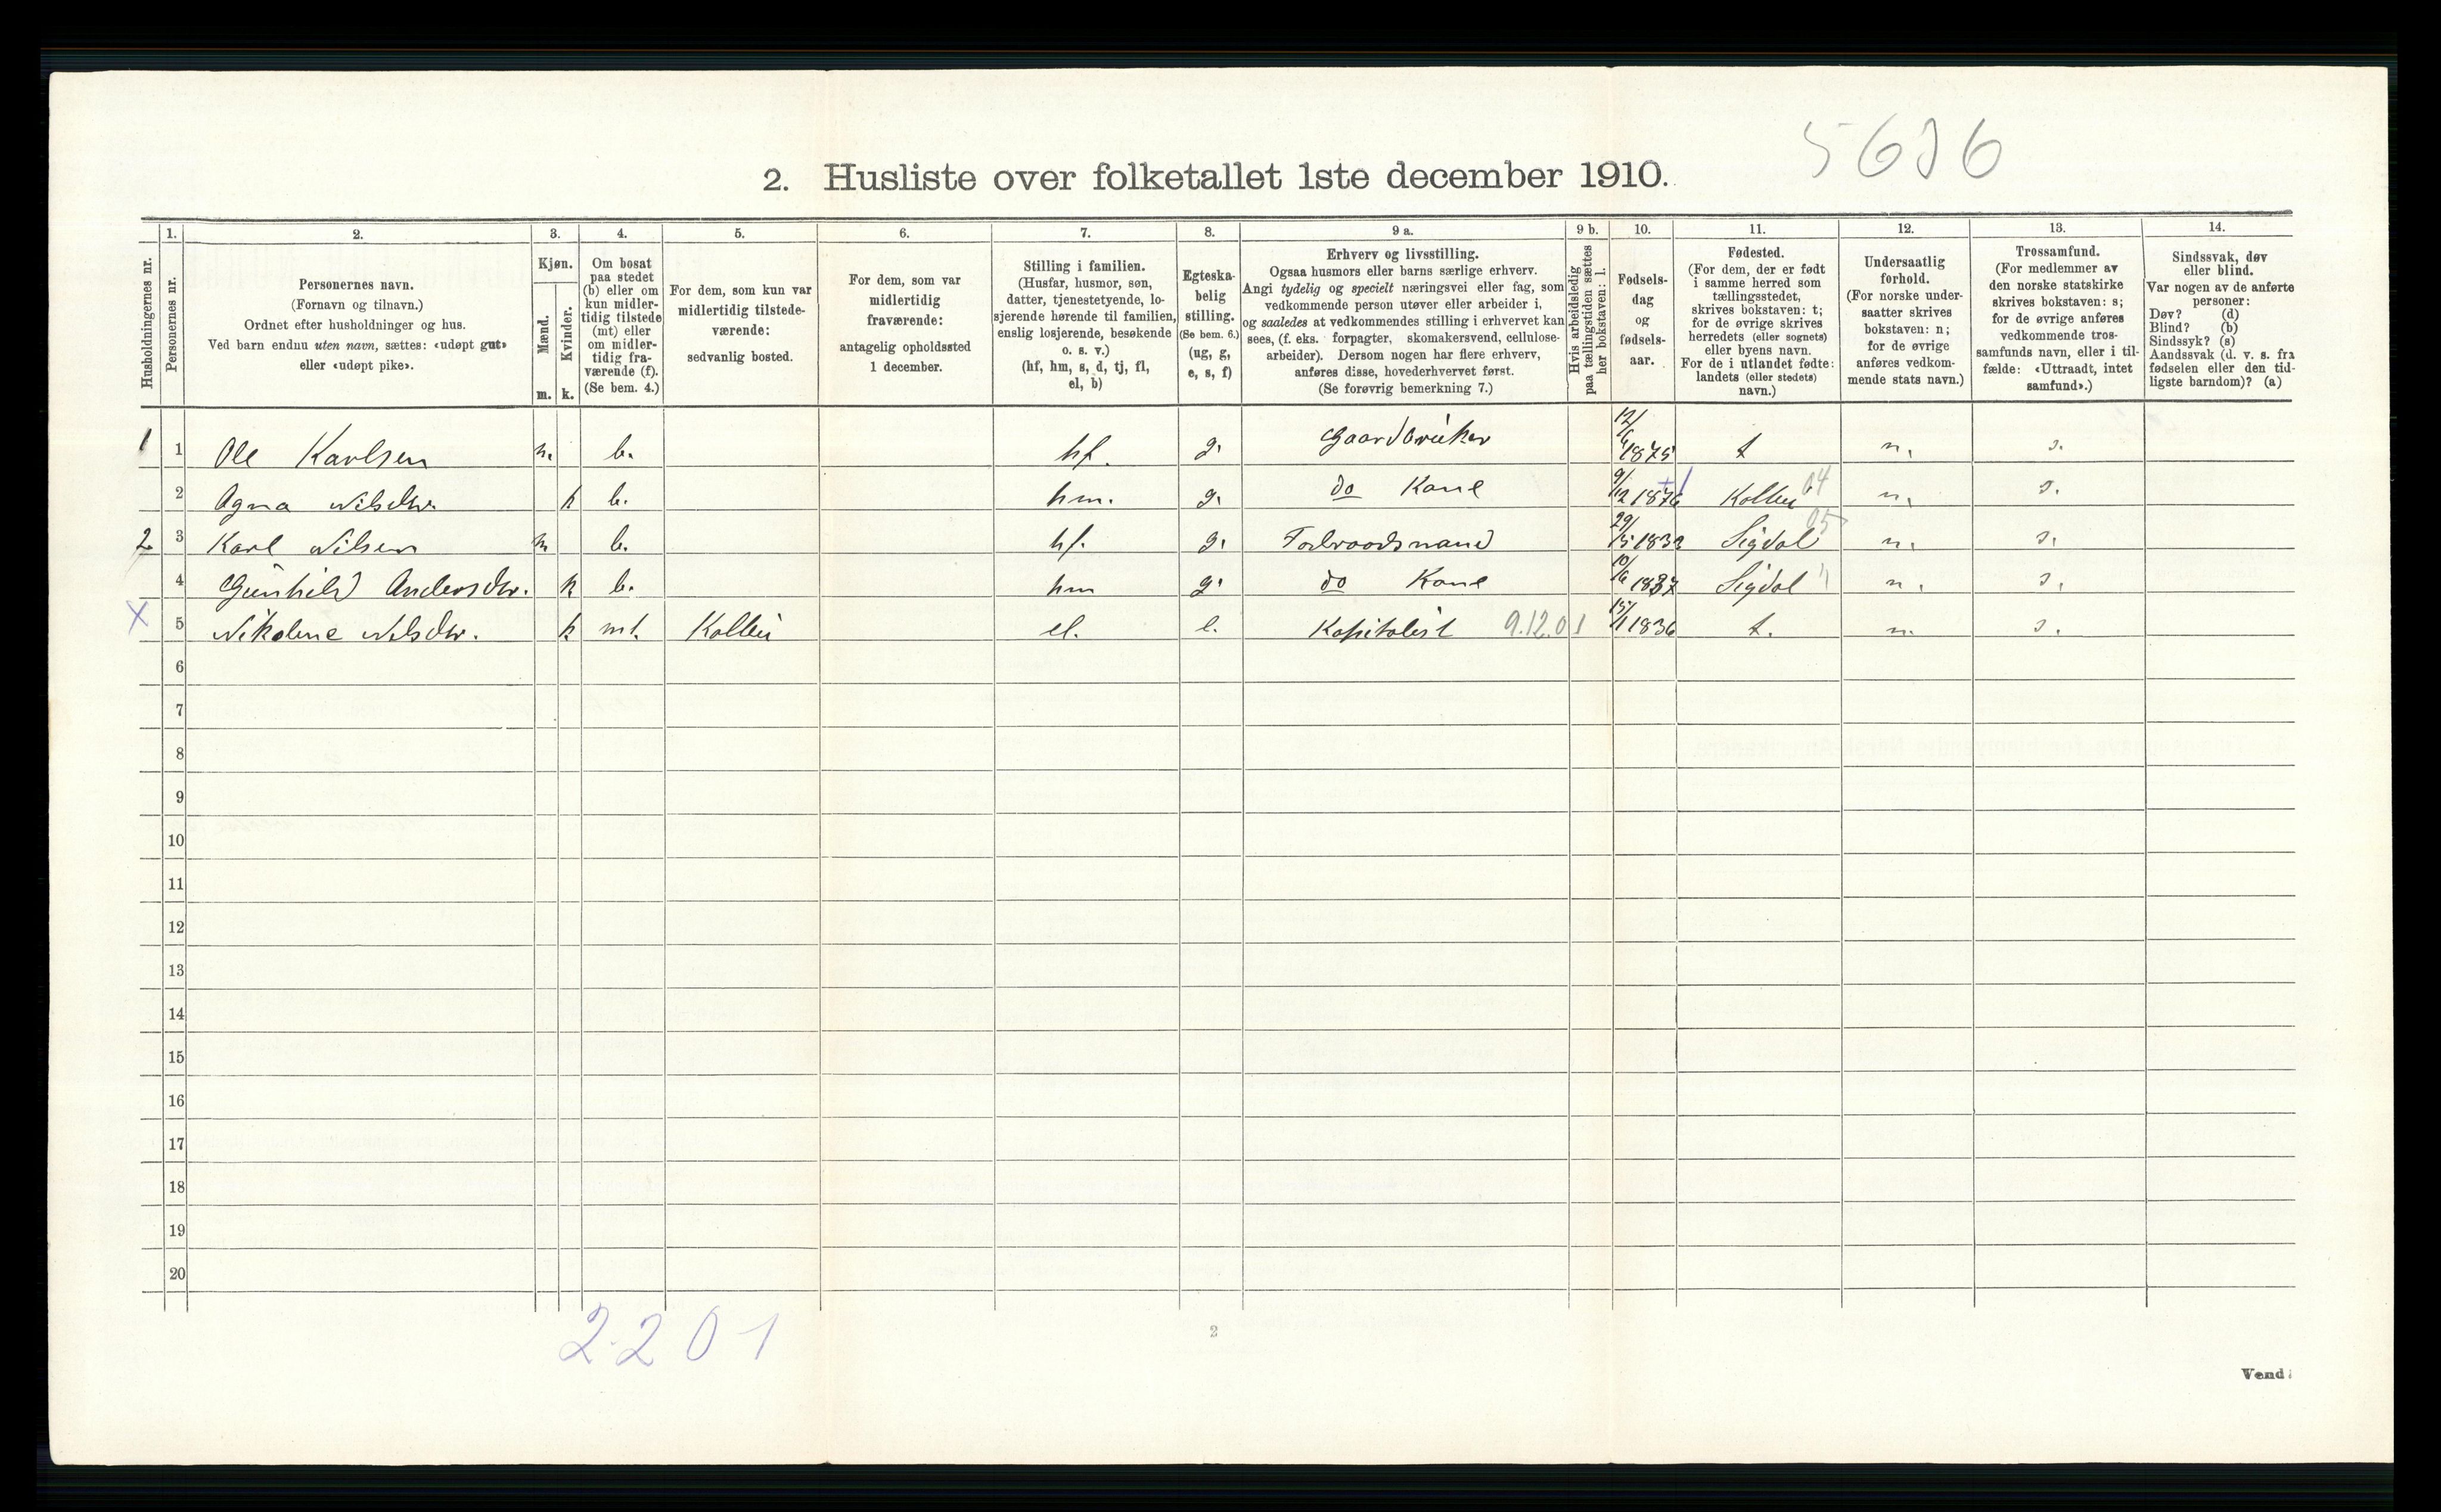 5636
2. Husliste over folketallet 1ste december 1910.
Husholdningernes nr.
1. Personernes nr.
2. Personernes navn.
(Fornavn og tilnavn.)
Ordnet efter husholdninger og hus.
Ved barn endnu uten navn, sættes: «udøpt gut»
eller «udøpt pike».
3. Kjøn.
Mænd. m.
Kvinder. k.
4. Om bosat
paa stedet
(b) eller om
kun midler-
tidig tilstede
(mt) eller
om midler-
tidig fra-
værende (f).
(Se bem. 4.)
5. For dem, som kun var
midlertidig tilstede-
værende:
sedvanlig bosted.
6. For dem, som var
midlertidig
fraværende:
antagelig opholdssted
1 december.
7. Stilling i familien.
(Husfar, husmor, søn,
datter, tjenestetyende, lo-
sjerende hørende til familien,
enslig losjerende, besøkende
o. s. v.)
(hf, hm, s, d, tj, fl,
el, b)
8. Egteska-
belig
stilling.
(Se bem. 6.)
(ug, g,
e, s, f)
9 a. Erhverv og livsstilling.
Ogsaa husmors eller barns særlige erhverv.
Angi tydelig og specielt næringsvei eller fag, som
vedkommende person utøver eller arbeider i,
og saaledes at vedkommendes stilling i erhvervet kan
sees, (f. eks. forpagter, skomakersvend, cellulose-
arbeider). Dersom nogen har flere erhverv,
anføres disse, hovederhvervet først.
(Se forøvrig bemerkning 7.)
9 b. Hvis arbeidsledig
paa tællingstiden sættes
her bokstaven: l.
10. Fødsels-
dag
og
fødsels-
aar.
11. Fødested.
(For dem, der er født
i samme herred som
tællingsstedet,
skrives bokstaven: t;
for de øvrige skrives
herredets (eller sognets)
eller byens navn.
For de i utlandet fødte:
landets (eller stedets)
navn.)
12. Undersaatlig
forhold.
(For norske under-
saatter skrives
bokstaven: n;
for de øvrige
anføres vedkom-
mende stats navn.)
13. Trossamfund.
(For medlemmer av
den norske statskirke
skrives bokstaven: s;
for de øvrige anføres
vedkommende tros-
samfunds navn, eller i til-
fælde: «Uttraadt, intet
samfund».)
14. Sindssvak, døv
eller blind.
Var nogen av de anførte
personer:
Døv? (d)
Blind? (b)
Sindssyk? (s)
Aandssvak (d. v. s. fra
fødselen eller den tid-
ligste barndom)? (a)
1 1 Ole Karlsen m. b. hf. g. Gaardbruker 12/4 1875 t n. s.
2 Agna Nilsdtr. k b. hm. g. do Kone 9/12 1876 Kollen 04 n. s.
2 3 Karl Nilsen m b. hf. g. Føderaadsmand 29/5 1833 Sigdal 05 n. s.
4 Gunhild Andersdtr. k b. hm g. do Kone 10/6 1837 Sigdal " n. s.
X 5 Nikoline Nilsdtr. k mt. Kollen el. e. Kapitalist 9.12.01 15/1 1836 t. n. s.
6
7
8
9
10
11
12
13
14
15
16
17
18
19
20
2.2 0 1
2
Vend!